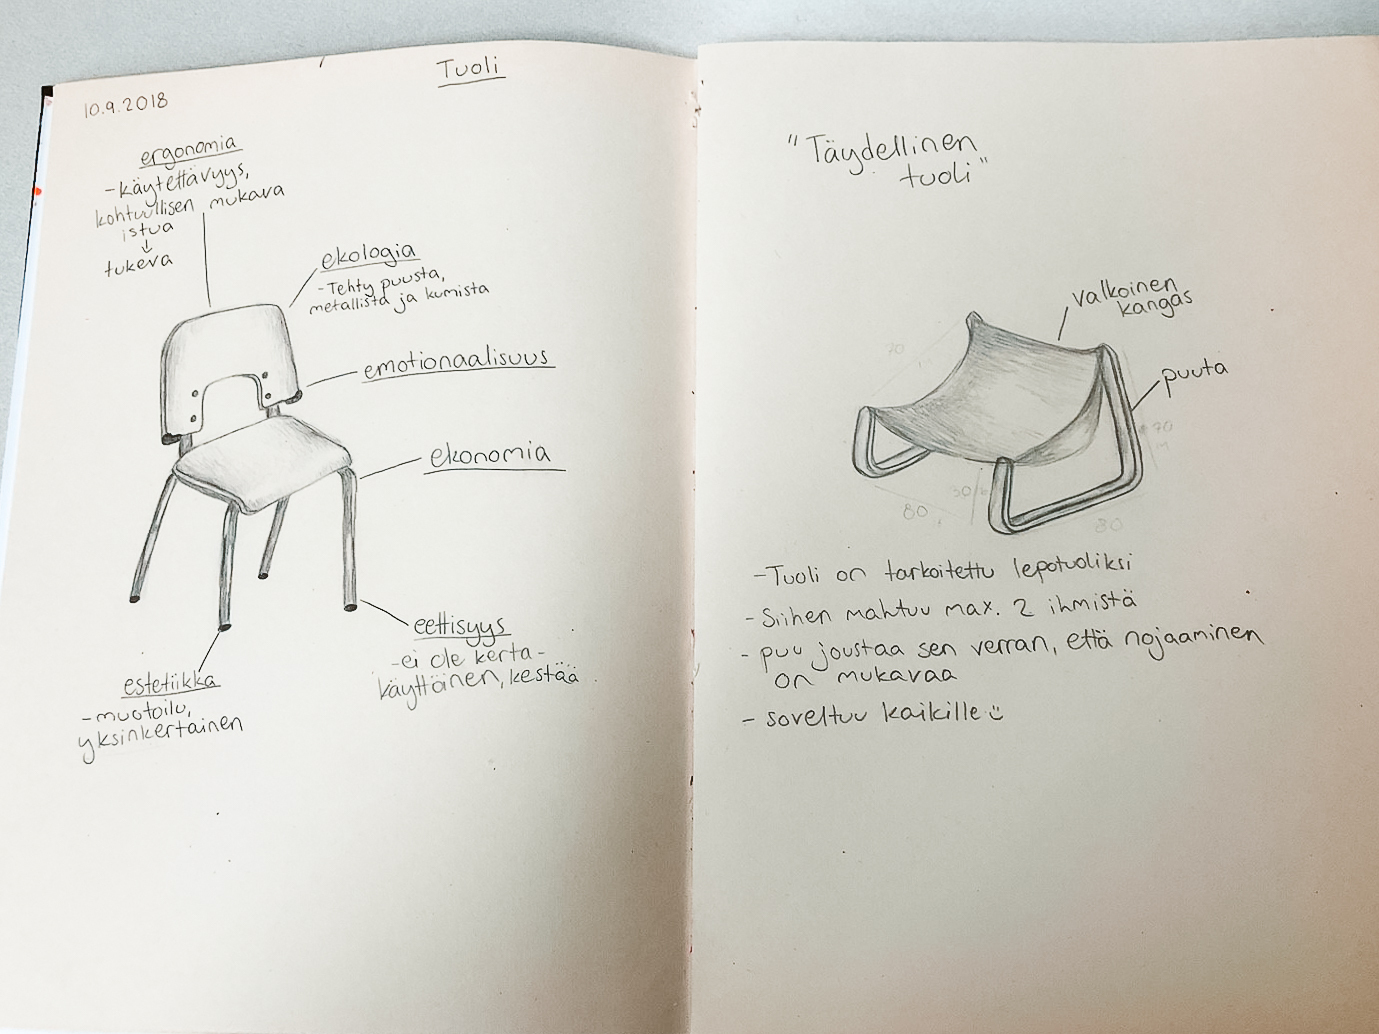 10.9.2018
Tuoli
ergonomia
-käytettävyys,
kohtuullisen mukava
istua
↓
tukeva
ekologia
-Tehty puusta,
metallista ja kumista
emotionaalisuus
ekonomia
eettisyys
-ei ole kerta-
käyttöinen, kestää
estetiikka
-muotoilu,
yksinkertainen
"Täydellinen
tuoli"
valkoinen
kangas
puuta
70
70
80
80
-Tuoli on tarkoitettu lepotuoliksi
-Siihen mahtuu max. 2 ihmistä
- puu joustaa sen verran, että nojaaminen
on mukavaa
- soveltuu kaikille